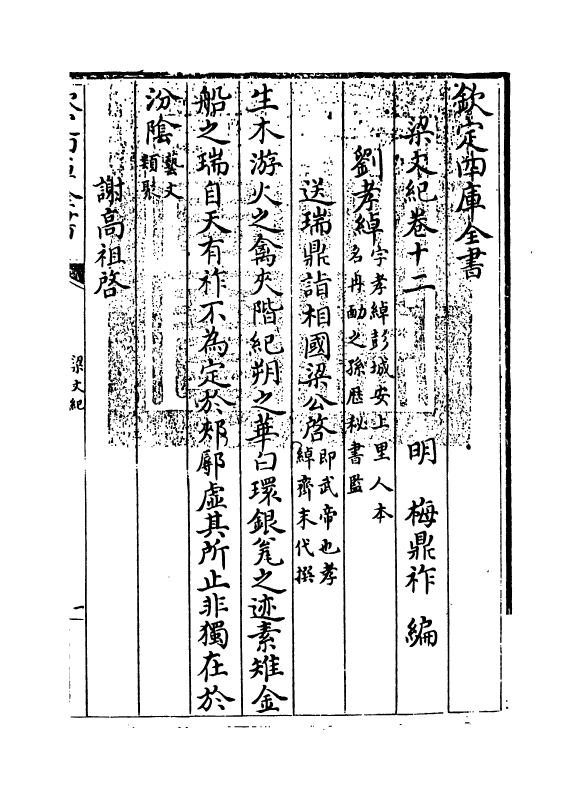 欽定四庫全書
梁文紀卷十二
明 梅鼎祚 編
劉孝綽字孝綽彭城安上里人本
名冉勔之孫歴秘書監
送瑞鼎詣相國梁公啓即武帝也孝
綽齊末代撰
生木游火之禽夾階紀朔之華白環銀瓮之迹素雉金
船之瑞自天有祚不為定於郟鄏虛其所止非獨在於
汾陰藝文
類聚
謝高祖啓
梁文紀
一